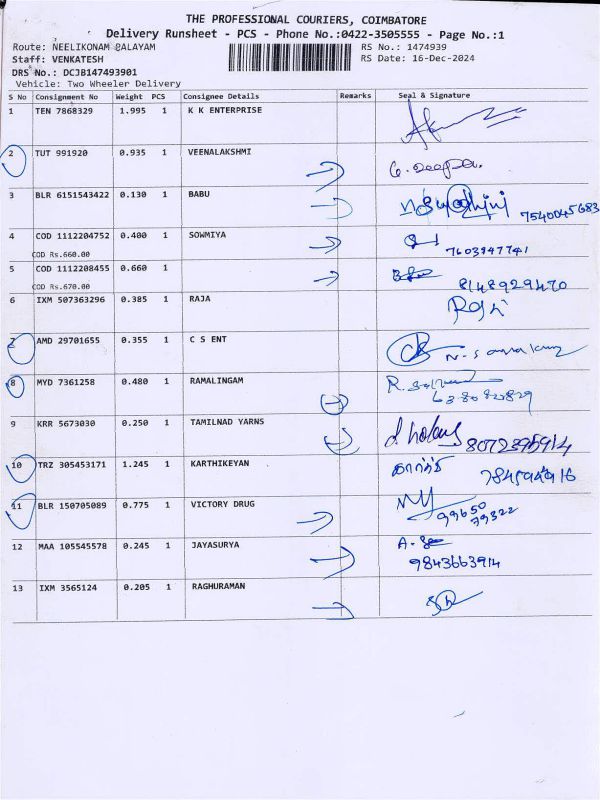 THE PROFESSIONAL COURIERS, COIMBATORE
Delivery Runsheet - PCS - Phone No.:0422-3505555 - Page No.:1
Route: NEELIKONAM PALAYAM
RS No.: 1474939
Staff: VENKATESH
RS Date: 16-Dec-2024
DRS No.: DCJB147493901
Vehicle: Two Wheeler Delivery
S No Consignment No Weight PCS Consignee Details Remarks Seal & Signature
1 TEN 7868329 1.995 1 K K ENTERPRISE
2 TUT 991920 0.935 1 VEENALAKSHMI
G. Deepa.
3 BLR 6151543422 0.130 1 BABU
7540045683
4 COD 1112204752 0.400 1 SOWMIYA
COD Rs.660.00
7603947741
5 COD 1112208455 0.660 1
COD Rs.670.00
8148929470
6 IXM 507363296 0.385 1 RAJA
7 AMD 29701655 0.355 1 C S ENT
8 MYD 7361258 0.480 1 RAMALINGAM
9 KRR 5673030 0.250 1 TAMILNAD YARNS
10 TRZ 305453171 1.245 1 KARTHIKEYAN
11 BLR 150705089 0.775 1 VICTORY DRUG
99650
79322
12 MAA 105545578 0.245 1 JAYASURYA
9843663914
13 IXM 3565124 0.205 1 RAGHURAMAN